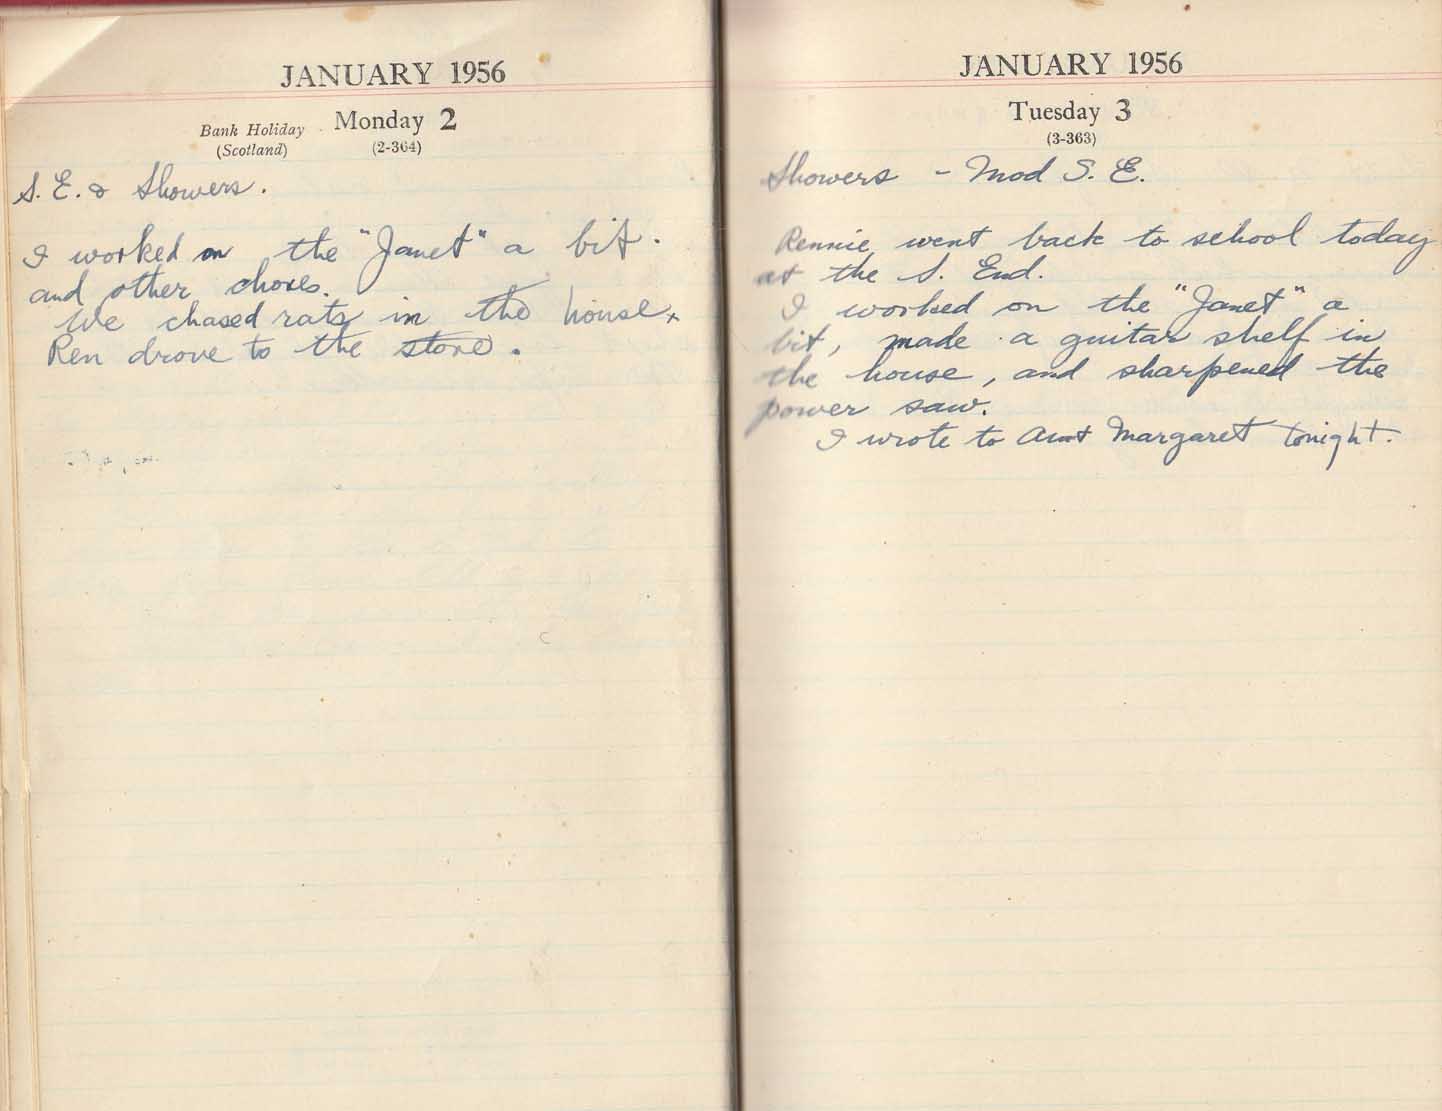 JANUARY 1956
Bank Holiday
(Scotland)
Monday 2
(2-364)
S. E. & Showers.
I worked on the "Janet" a bit.
and other chores.
We chased rats in the house +
Ren drove to the store.
JANUARY 1956
Tuesday 3
(3-363)
Showers - Mod S. E.
Rennie went back to school today
at the S. End.
I worked on the "Janet" a
bit, made a guitar shelf in
the house, and sharpened the
power saw.
I wrote to Aunt Margaret tonight.